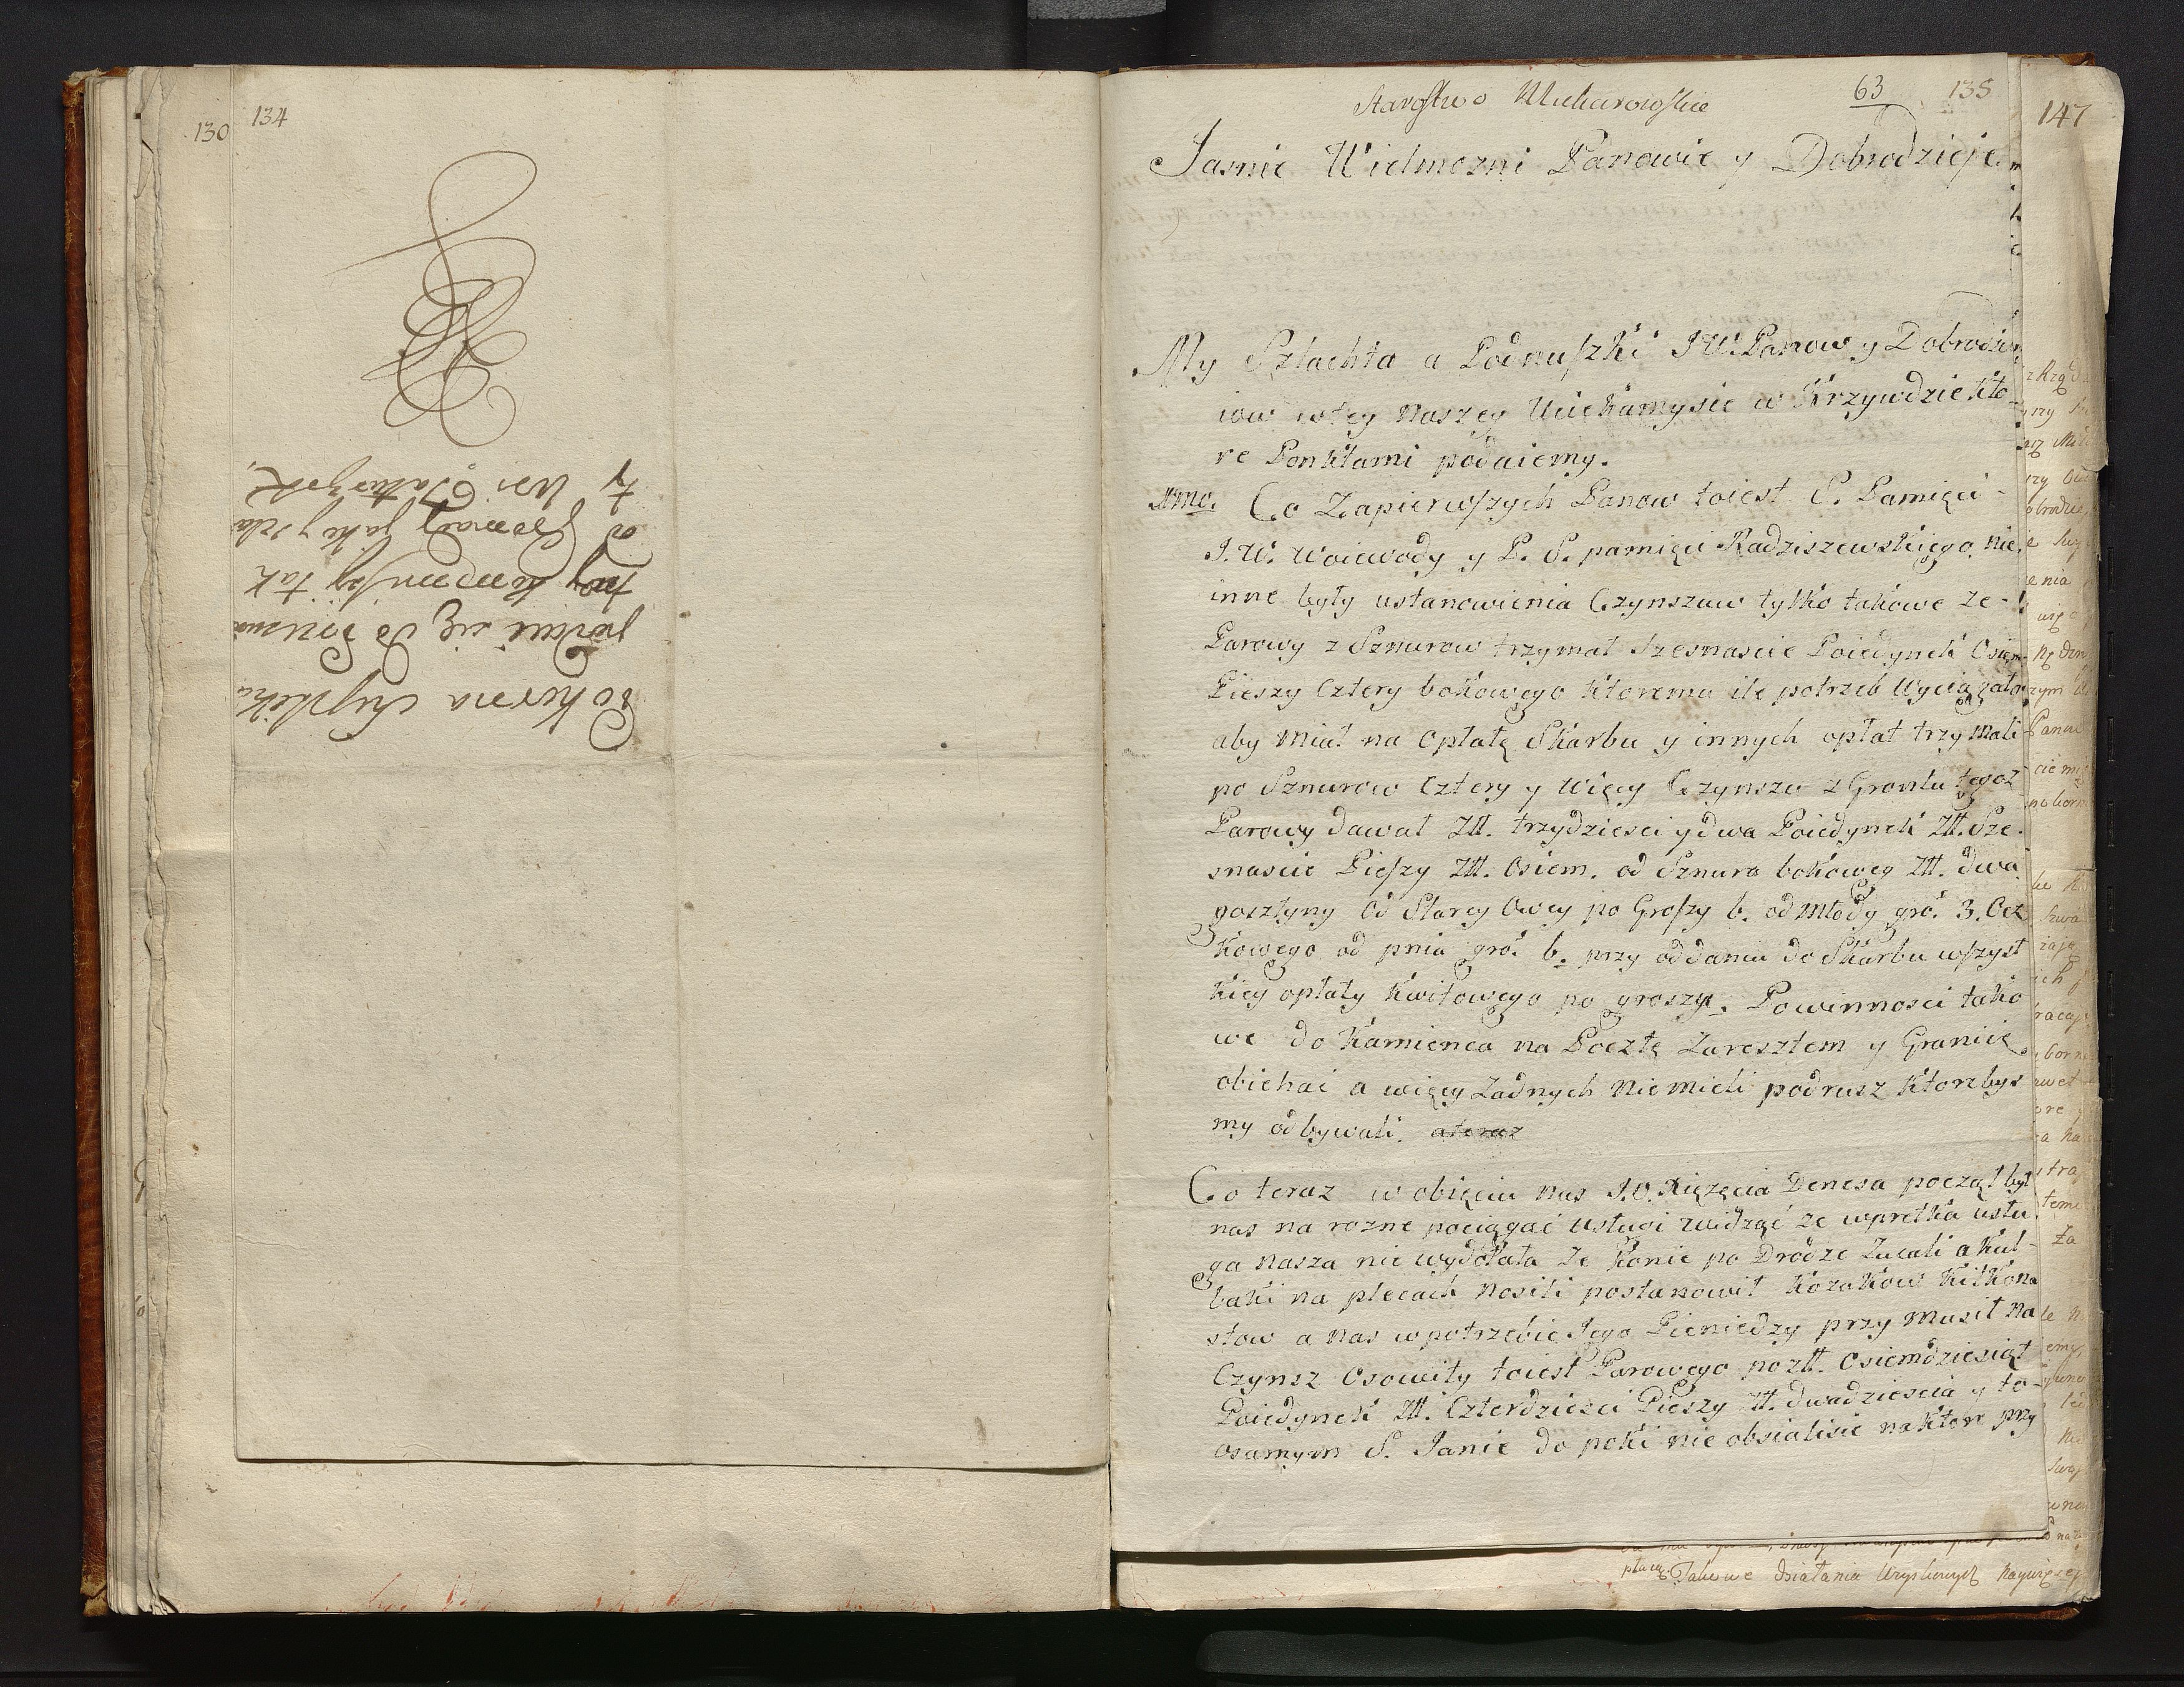 130
134
Pokorna Suplika
podaie się do Prześwie
tny Kommissyi tak
od Gromady jako y szla
ty Wsi
63 135
Starostwo
147
Jasnie Wielmozni Panowie y Dobrodzieje
My Szlachta a Podnuszki J W. Panow y Dobrodzie
iow wtey naszey Uciekamysie w Krzywdzie kto
re Ponktami podaiemy.
1mo. Co Zapierwszych Panow toiest S. Pamięci
J. W. Woiewody y P. S. pamięci Radziszewskiego nie
inne były ustanowienia Czynszuw tylko takowe ze
Parowy z Sznurow trzymał Szesnascie Poiedynek Osiem
Pieszy Cztery bokowego ktoremu ile potrzeb Wyciągało
aby miał na Opłatę Skarbu y innych opłat trzymali
po Sznurow Cztery y Więcy Czynszu z Grontu tegoz
Parowy dawał Złł. trzydziesci y dwa Poiedynek Złł. Sze
snascie Pieszy Złł. Osiem. od Sznura bokoweg Złł. dwa
gosztyny Od Starey Owcy po Groszy 6. od Młody gro. 3. Ocz
kowego od pnia gro. 6. przy oddaniu do Skarbu wszyst
kiey opłaty kwitowego po groszy. Powinnosci tako
we do Kamienca na Pocztę Zaresztem y Granicę
obiehać a więcy Zadnych niemieli podrusz ktorebys
my odbywali. ateraz
Co teraz w obięciu nas J.O. Xiązęcia Denesa począł był
nas na rozne pociągać usługi widząć ze wprętka usłu
ga nasza nie wydołała ze konie po Drodze Zucali a kul
baki na plecach nosili postanowił Kozakow kilkona
stow a nas wpotrzebie Jego Pieniedzy przymusił na
Czynsz Osowity toiest Parowego po złł. Osiemdziesiąt
Poiedynek Złł. Czterdziesci Pieszy Złł. dwadziescia y to
osamym S. Janie do poki nie obsialisie naktor przy
Takowe działania